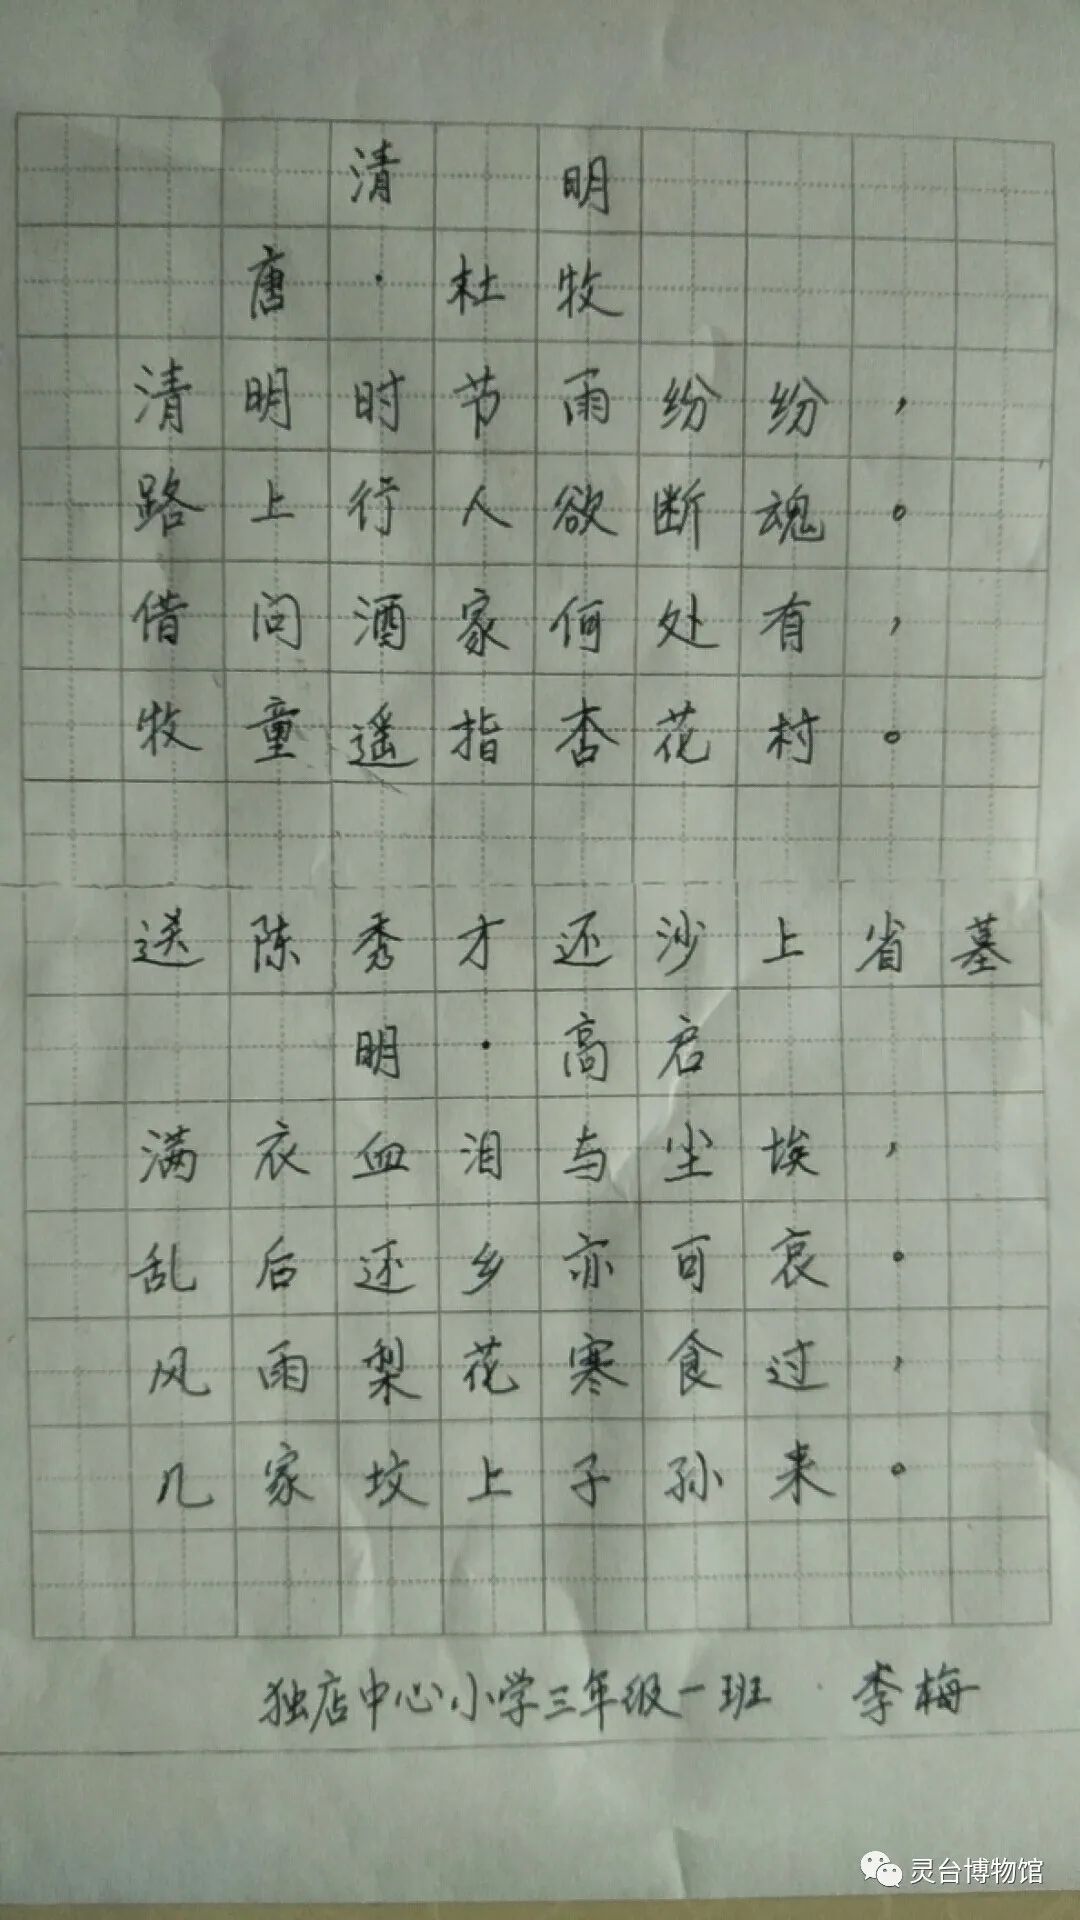 清明
唐·杜牧
清明时节雨纷纷，
路上行人欲断魂。
借问酒家何处有，
牧童遥指杏花村。
送陈秀才还沙上省墓
明·高启
满衣血泪与尘埃，
乱后还乡亦可哀。
风雨梨花寒食过，
几家坟上子孙来。
独店中心小学三年级一班 李梅
灵台博物馆